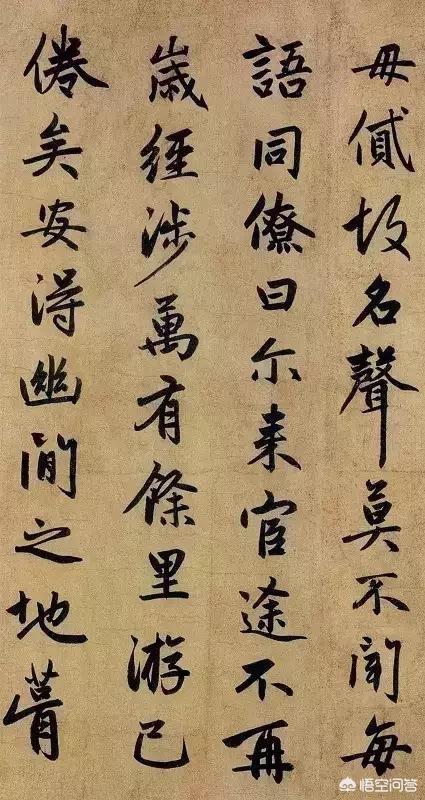 毋貸故名聲莫不聞每
語同僚曰尔来官途不再
歲經涉萬有餘里游已
倦矣安得幽閒之地葺
悟空问答